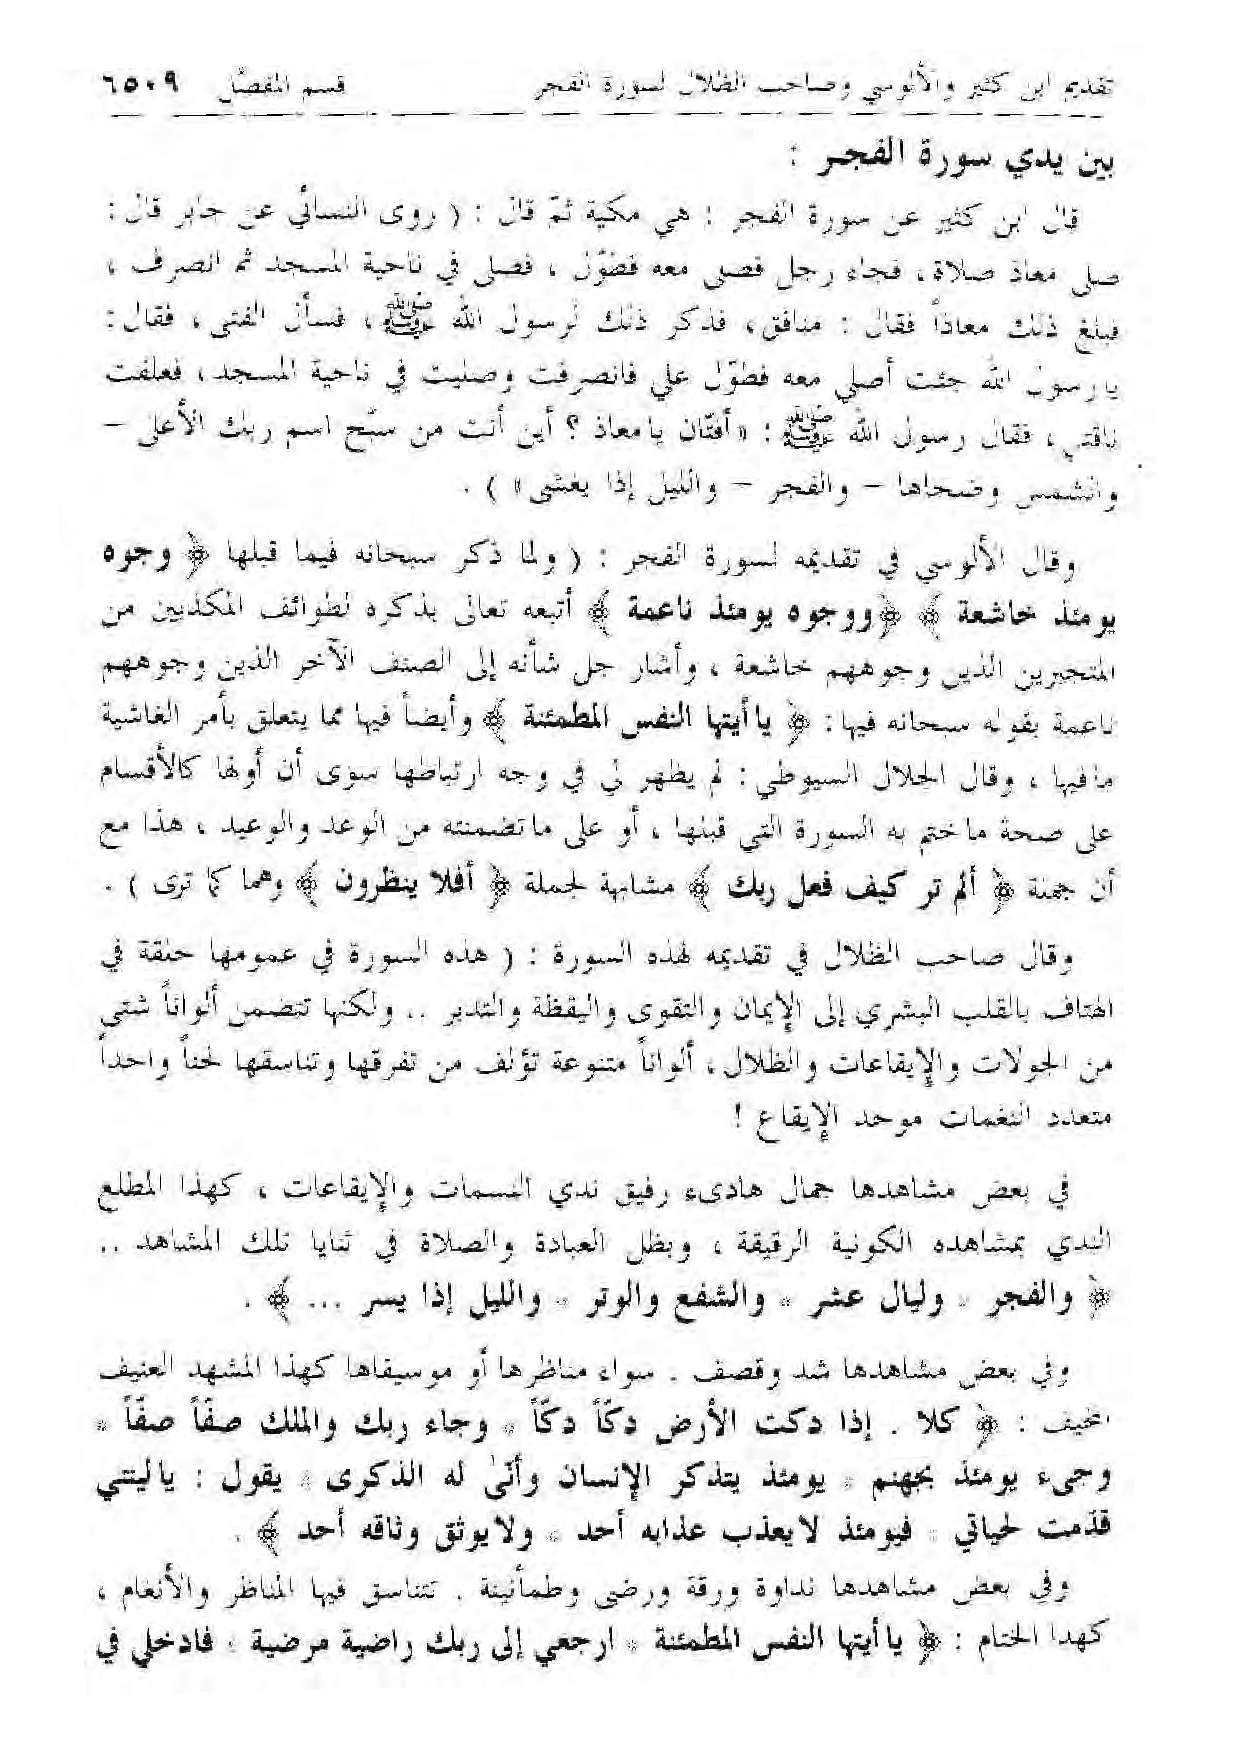 تقديم ابن كثير والألوسي وصاحب الظلال لسورة الفجر قسم المفصّل ٦٥٠٩
بين يدي سورة الفجر :
قال ابن كثير عن سورة الفجر : هي مكية ثمّ قال : ( روى النسائي عن جابر قال :
صلى معاذ صلاة ، فجاء رجل فصلى معه فطوّل ، فصلى في ناحية المسجد ثم انصرف ،
فبلغ ذلك معاذاً فقال : منافق ، فذكر ذلك لرسول الله ﷺ ، فسأل الفتى ، فقال :
يا رسول الله جئت أصلي معه فطوّل علي فانصرفت وصليت في ناحية المسجد ، فعلفت
ناقتي ، فقال رسول الله ﷺ : « أفتّان يا معاذ ؟ أين أنت من سبّح اسم ربك الأعلى –
والشمس وضحاها – والفجر – والليل إذا يغشى » ) .
وقال الألوسي في تقديمه لسورة الفجر : ( ولما ذكر سبحانه فيما قبلها ﴿ وجوه
يومئذ خاشعة ﴾ ﴿ ووجوه يومئذ ناعمة ﴾ أتبعه تعالى بذكره لطوائف المكذبين من
المتجبرين الذين وجوههم خاشعة ، وأشار جل شأنه إلى الصنف الآخر الذين وجوههم
ناعمة بقوله سبحانه فيها : ﴿ يا أيتها النفس المطمئنة ﴾ وأيضاً فيها مما يتعلق بأمر الغاشية
ما فيها ، وقال الجلال السيوطي : لم يظهر لي في وجه ارتباطها سوى أن أولها كالأقسام
على صحة ما ختم به السورة التي قبلها ، أو على ما تضمنته من الوعد والوعيد ، هذا مع
أن جملة ﴿ ألم تر كيف فعل ربك ﴾ مشابهة لجملة ﴿ أفلا ينظرون ﴾ وهما كما ترى ) .
وقال صاحب الظلال في تقديمه لهذه السورة : ( هذه السورة في عمومها حلقة في
الهتاف بالقلب البشري إلى الإيمان والتقوى واليقظة والتدبر .. ولكنها تتضمن ألواناً شتى
من الجولات والإيقاعات والظلال ، ألواناً متنوعة تؤلف من تفرقها وتناسقها لحناً واحداً
متعدد النغمات موحد الإيقاع !
في بعض مشاهدها جمال هادىء رفيق ندي النسمات والإيقاعات ، كهذا المطلع
الندي بمشاهده الكونية الرقيقة ، وبظل العبادة والصلاة في ثنايا تلك المشاهد ..
﴿ والفجر * وليال عشر * والشفع والوتر * والليل إذا يسر ... ﴾ .
وفي بعض مشاهدها شد وقصف . سواء مناظرها أو موسيقاها كهذا المشهد العنيف
المخيف : ﴿ كلا . إذا دكت الأرض دكّاً دكّاً * وجاء ربك والملك صفّاً صفّاً *
وجيء يومئذ بجهنم * يومئذ يتذكر الإنسان وأنّى له الذكرى * يقول : يا ليتني
قدّمت لحياتي * فيومئذ لا يعذب عذابه أحد * ولا يوثق وثاقه أحد ﴾ .
وفي بعض مشاهدها نداوة ورقة ورضى وطمأنينة . تتناسق فيها المناظر والأنغام ،
كهذا الختام : ﴿ يا أيتها النفس المطمئنة * ارجعي إلى ربك راضية مرضية * فادخلي في